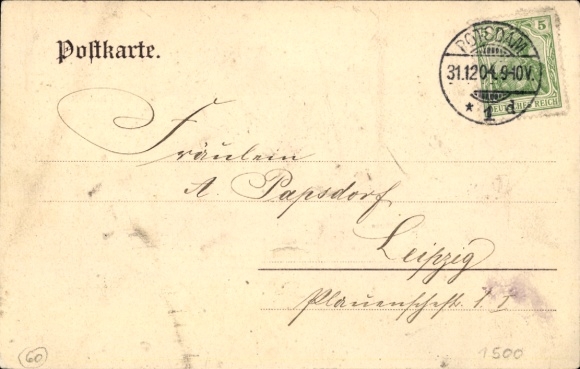 Postkarte.
5
POTSDAM
31.12.04. 9-10V.
* 1 d
DEUTSCHES REICH
Fräulein
A. Papsdorf
Leipzig
60
1500